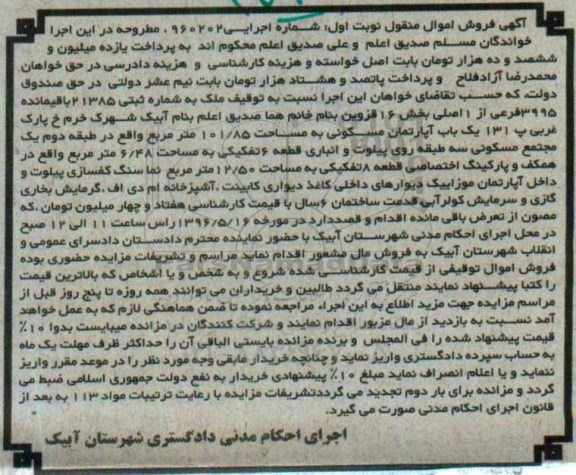 آگهی فروش اموال منقول نوبت اول: شماره اجرایی۹۶۰۲۰۲ ، مطروحه در این اجرا
خواندگان مسلم صدیق اعلم و علی صدیق اعلم محکوم اند به پرداخت یازده میلیون و
ششصد و ده هزار تومان بابت اصل خواسته و هزینه کارشناسی و هزینه دادرسی در حق خواهان
محمدرضا آزادفلاح و پرداخت پانصد و هشتاد هزار تومان بابت نیم عشر دولتی در حق صندوق
دولت، که حسب تقاضای خواهان این اجرا نسبت به توقیف ملک به شماره ثبتی ۲۱۳۸۵باقیمانده
۳۹۹۵فرعی از ۱اصلی بخش ۱۶قزوین بنام خانم هما صدیق اعلم بنام آبیک شهرک خرم خ پارک
غربی پ ۱۳۱ یک باب آپارتمان مسکونی به مساحت ۱۰۱/۸۵ متر مربع واقع در طبقه دوم یک
مجتمع مسکونی سه طبقه روی پیلوت و انباری قطعه ۶تفکیکی به مساحت ۶/۴۸ متر مربع واقع در
همکف و پارکینگ اختصاصی قطعه ۸تفکیکی به مساحت ۱۲/۵۰متر مربع نما سنگ کفسازی پیلوت و
داخل آپارتمان موزاییک دیوارهای داخلی کاغذ دیواری کابینت ،آشپزخانه ام دی اف ،گرمایش بخاری
گازی و سرمایش کولرآبی قدمت ساختمان ۶سال با قیمت کارشناسی هفتاد و چهار میلیون تومان ،که
مصون از تعرض باقی مانده اقدام و قصددارد در مورخه ۱۳۹۶/۵/۱۶راس ساعت ۱۱ الی ۱۲ صبح
در محل اجرای احکام مدنی شهرستان آبیک با حضور نماینده محترم دادستان دادسرای عمومی و
انقلاب شهرستان آبیک به فروش مال مشعور اقدام نماید مراسم و تشریفات مزایده حضوری بوده
فروش اموال توقیفی از قیمت کارشناسی شده شروع و به شخص و یا اشخاص که بالاترین قیمت
را کتبا پیشنهاد نمایند منتقل می گردد طالبین و خریداران می توانند همه روزه تا پنج روز قبل از
مراسم مزایده جهت مزید اطلاع به این اجراء مراجعه نموده تا ضمن هماهنگی لازم که به عمل خواهد
آمد نسبت به بازدید از مال مزبور اقدام نمایند و شرکت کنندگان در مزایده میبایست بدوا ۱۰٪
قیمت پیشنهاد شده را فی المجلس و برنده مزایده بایستی الباقی آن را حداکثر ظرف مهلت یک ماه
به حساب سپرده دادگستری واریز نماید و چنانچه خریدار مابقی وجه مورد نظر را در موعد مقرر واریز
ننماید و یا اعلام انصراف نماید مبلغ ۱۰٪ پیشنهادی خریدار به نفع دولت جمهوری اسلامی ضبط می
گردد و مزایده برای بار دوم تجدید می گرددتشریفات مزایده با رعایت ترتیبات مواد ۱۱۳ به بعد از
قانون اجرای احکام مدنی صورت می گیرد.
اجرای احکام مدنی دادگستری شهرستان آبیک